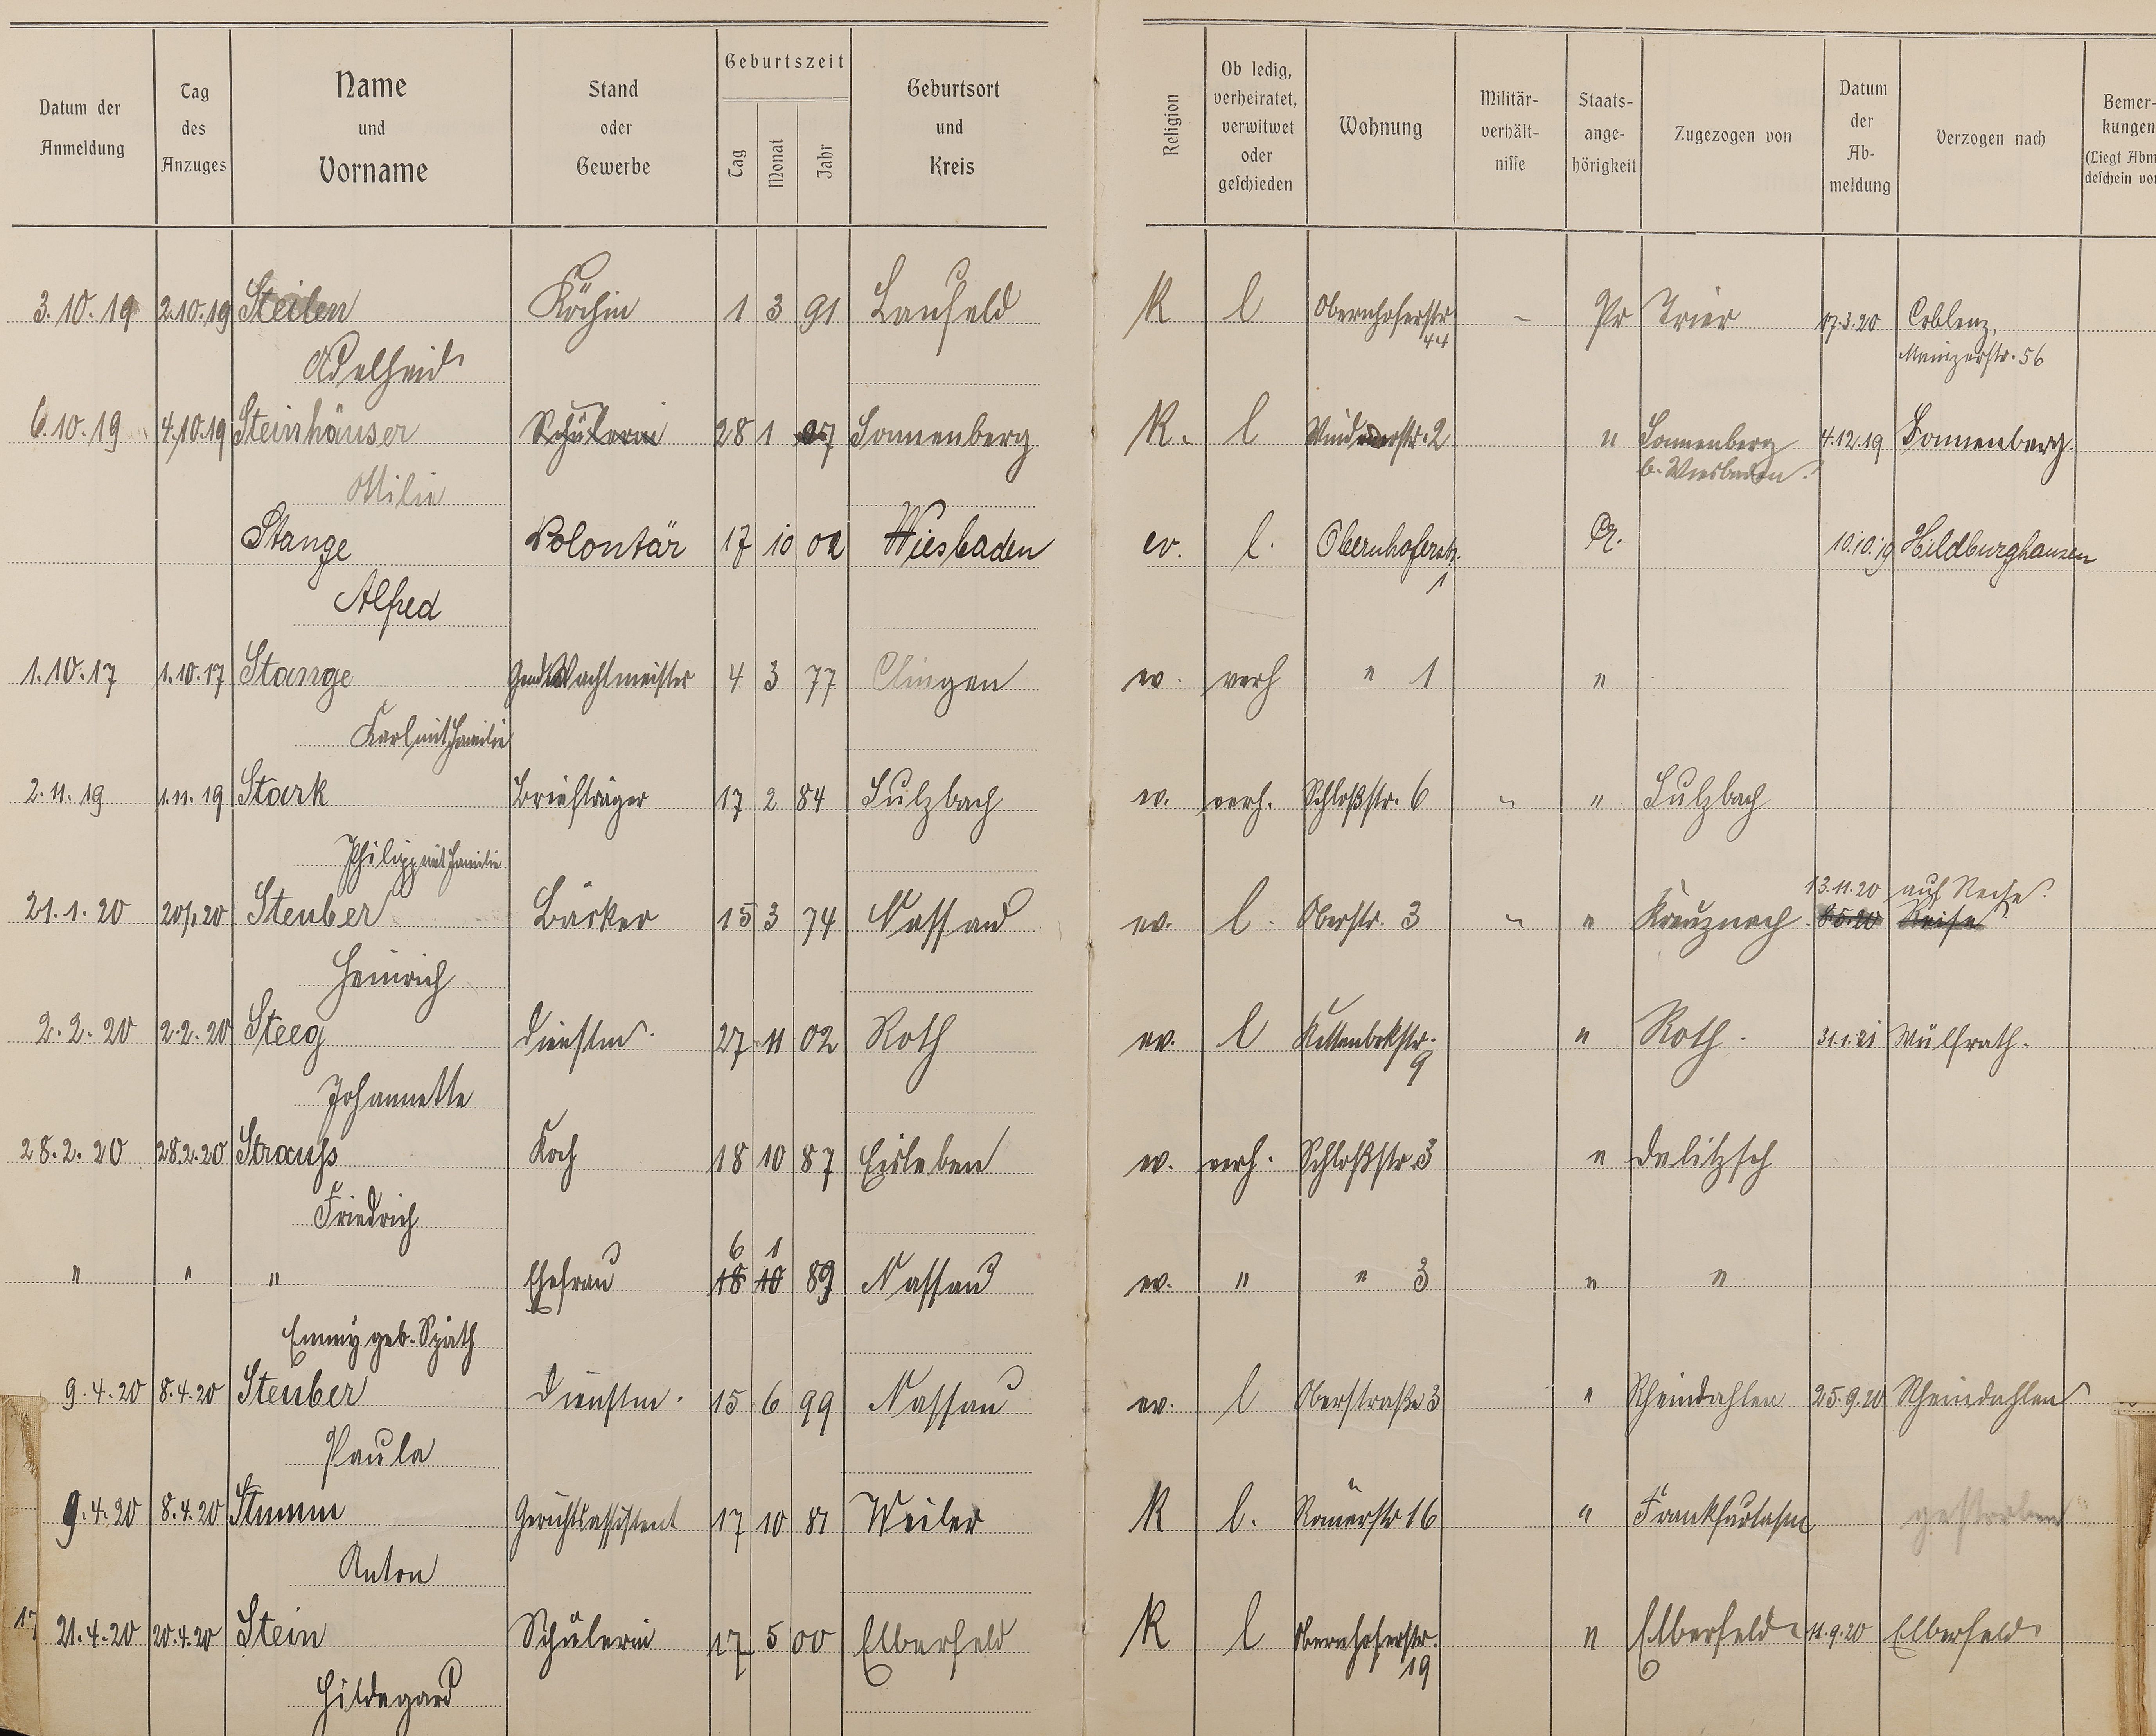 Datum der Anmeldung | Tag des Anzuges | Name und Vorname | Stand oder Gewerbe | Geburtszeit Tag Monat Jahr | Geburtsort und Kreis | Religion | Ob ledig, verheiratet, verwitwet oder geschieden | Wohnung | Militär-verhält-nisse | Staats-ange-hörigkeit | Zugezogen von | Datum der Ab-meldung | Verzogen nach | Bemer-kungen (Liegt Abm deschein vor
3.10.19 2.10.19 Steilen Köchin 1 3 91 Laufeld K l Obernhoferstr - Pr Trier 17.3.20 Coblenz,
Adelheid 44 Mainzerstr. 56
6.10.19 4.10.19 Steinhäuser Schülerin 28 1 07 Sonnenberg K. l Windenerstr. 2 " Sonnenberg 4.12.19 Sonnenberg.
Ottilie b. Wiesbaden.
Stange Volontär 17 10 02 Wiesbaden ev. l. Obernhoferstr. Pr. 10.10.19 Hildburghausen
Alfred 1
1.10.17 1.10.17 Stange Gend Wachtmeister 4 3 77 Clingen ev. verh " 1 "
Karl mit Familie
2.11.19 1.11.19 Stark Briefträger 17 2 84 Sulzbach ev. verh. Schloßstr. 6 " " Sulzbach
Philipp mit Familie
13.11.20 auf Reise.
21.1.20 20/1 20 Steuber Bäcker 15 3 74 Nassau ev. l. Oberstr. 3 " " Kreuznach Reise
Heinrich
2.2.20 2.2.20 Steeg Dienstm. 27 11 02 Roth ev. l Kettenbrkstr. " Roth. 31.1.21 Wülfrath.
Johannette 9
28.2.20 28.2.20 Strauß Koch 18 10 87 Eisleben ev. verh. Schloßstr. 3 " Delitzsch
Friedrich
6 1
" " " Ehefrau 18 10 89 Nassau ev. " " 3 " "
Emmy geb. Späth
9.4.20 8.4.20 Steuber Dienstm. 15 6 99 Nassau ev. l Oberstraße 3 " Rheindahlen 25.9.20 Rheindahlen
Paula
9.4.20 8.4.20 Stumm Gerichtsassistent 17 10 81 Weiler K l. Römerstr 16 " Frankfurt a/m gestorben
Anton
17 21.4.20 20.4.20 Stein Schülerin 17 5 00 Elberfeld K l Obernhoferstr. " Elberfeld 11.9.20 Elberfeld
Hildegard 19